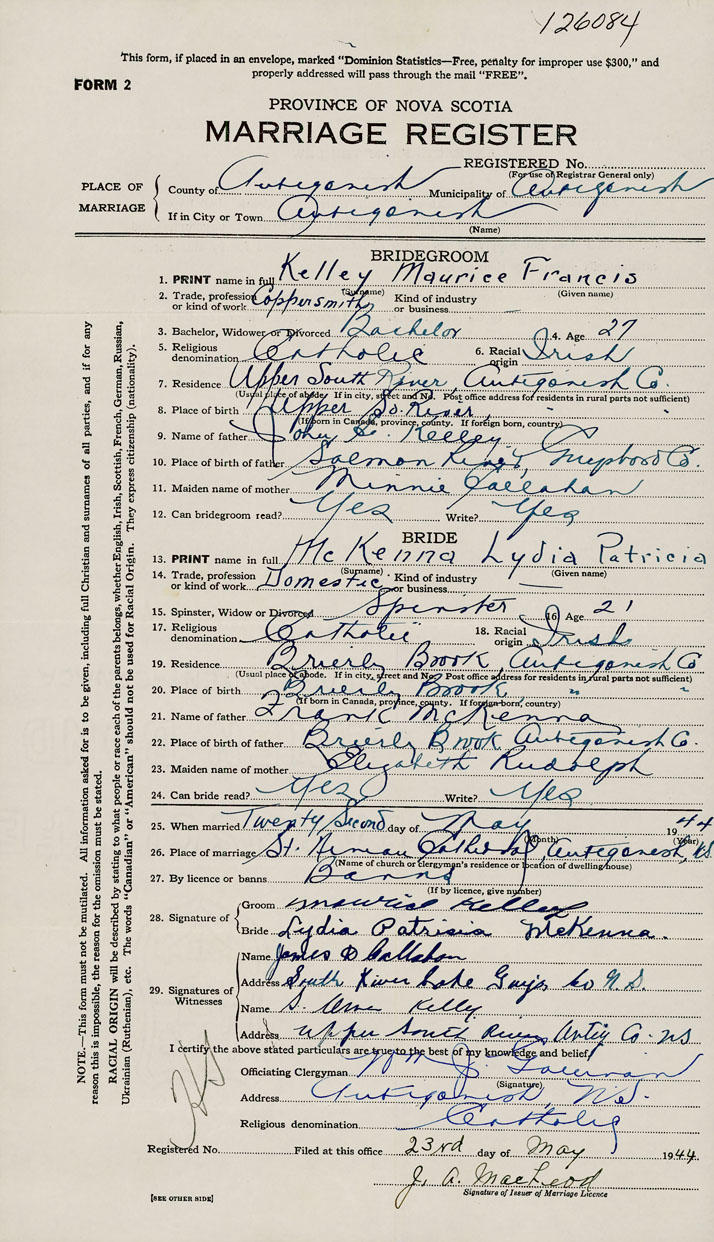 126084
This form, if placed in an envelope, marked "Dominion Statistics—Free, penalty for improper use $300," and
properly addressed will pass through the mail "FREE".
FORM 2
PROVINCE OF NOVA SCOTIA
MARRIAGE REGISTER
REGISTERED No.
(For use of Registrar General only)
PLACE OF MARRIAGE
County of Antigonish Municipality of Antigonish
If in City or Town Antigonish
(Name)
BRIDEGROOM
1. PRINT name in full Kelley Maurice Francis
(Surname) (Given name)
2. Trade, profession or kind of work Coppersmith Kind of industry or business —
3. Bachelor, Widower or Divorced Bachelor 4. Age 27
5. Religious denomination Catholic 6. Racial origin Irish
7. Residence Upper South River, Antigonish Co.
(Usual place of abode. If in city, street and No. Post office address for residents in rural parts not sufficient)
8. Place of birth Upper So. River, " "
(If born in Canada, province, county. If foreign born, country)
9. Name of father John Kelley
10. Place of birth of father Salmon River, Guysboro Co.
11. Maiden name of mother Minnie Callahan
12. Can bridegroom read? Yes Write? Yes
BRIDE
13. PRINT name in full McKenna Lydia Patricia
(Surname) (Given name)
14. Trade, profession or kind of work Domestic Kind of industry or business —
15. Spinster, Widow or Divorced Spinster 16. Age 21
17. Religious denomination Catholic 18. Racial origin Irish
19. Residence Brierly Brook, Antigonish Co
(Usual place of abode. If in city, street and No. Post office address for residents in rural parts not sufficient)
20. Place of birth Brierly Brook " "
(If born in Canada, province, county. If foreign-born, country)
21. Name of father Frank McKenna
22. Place of birth of father Brierly Brook Antigonish Co.
23. Maiden name of mother Elizabeth Rudolph
24. Can bride read? Yes Write? Yes
25. When married Twenty Second day of May 1944
(Month) (Year)
26. Place of marriage St. Ninian Cathedral, Antigonish, N.S.
(Name of church or clergyman's residence or location of dwelling house)
27. By licence or banns Banns
(If by licence, give number)
28. Signature of
Groom Maurice Kelley
Bride Lydia Patricia McKenna.
29. Signatures of Witnesses
Name James D Callahan
Address South River Lake Guys Co N.S.
Name Kelly
Address Upper South River, Antig Co. NS
I certify the above stated particulars are true to the best of my knowledge and belief,
Officiating Clergyman
(Signature)
Address Antigonish, N.S.
Religious denomination Catholic
Registered No. Filed at this office 23rd day of May 1944
J. A. MacLeod
Signature of Issuer of Marriage Licence
[SEE OTHER SIDE]
NOTE.—This form must not be mutilated. All information asked for is to be given, including full Christian and surnames of all parties, and if for any
reason this is impossible, the reason for the omission must be stated.
RACIAL ORIGIN will be described by stating to what people or race each of the parents belongs, whether English, Irish, Scottish, French, German, Russian,
Ukrainian (Ruthenian), etc. The words "Canadian" or "American" should not be used for Racial Origin. They express citizenship (nationality).